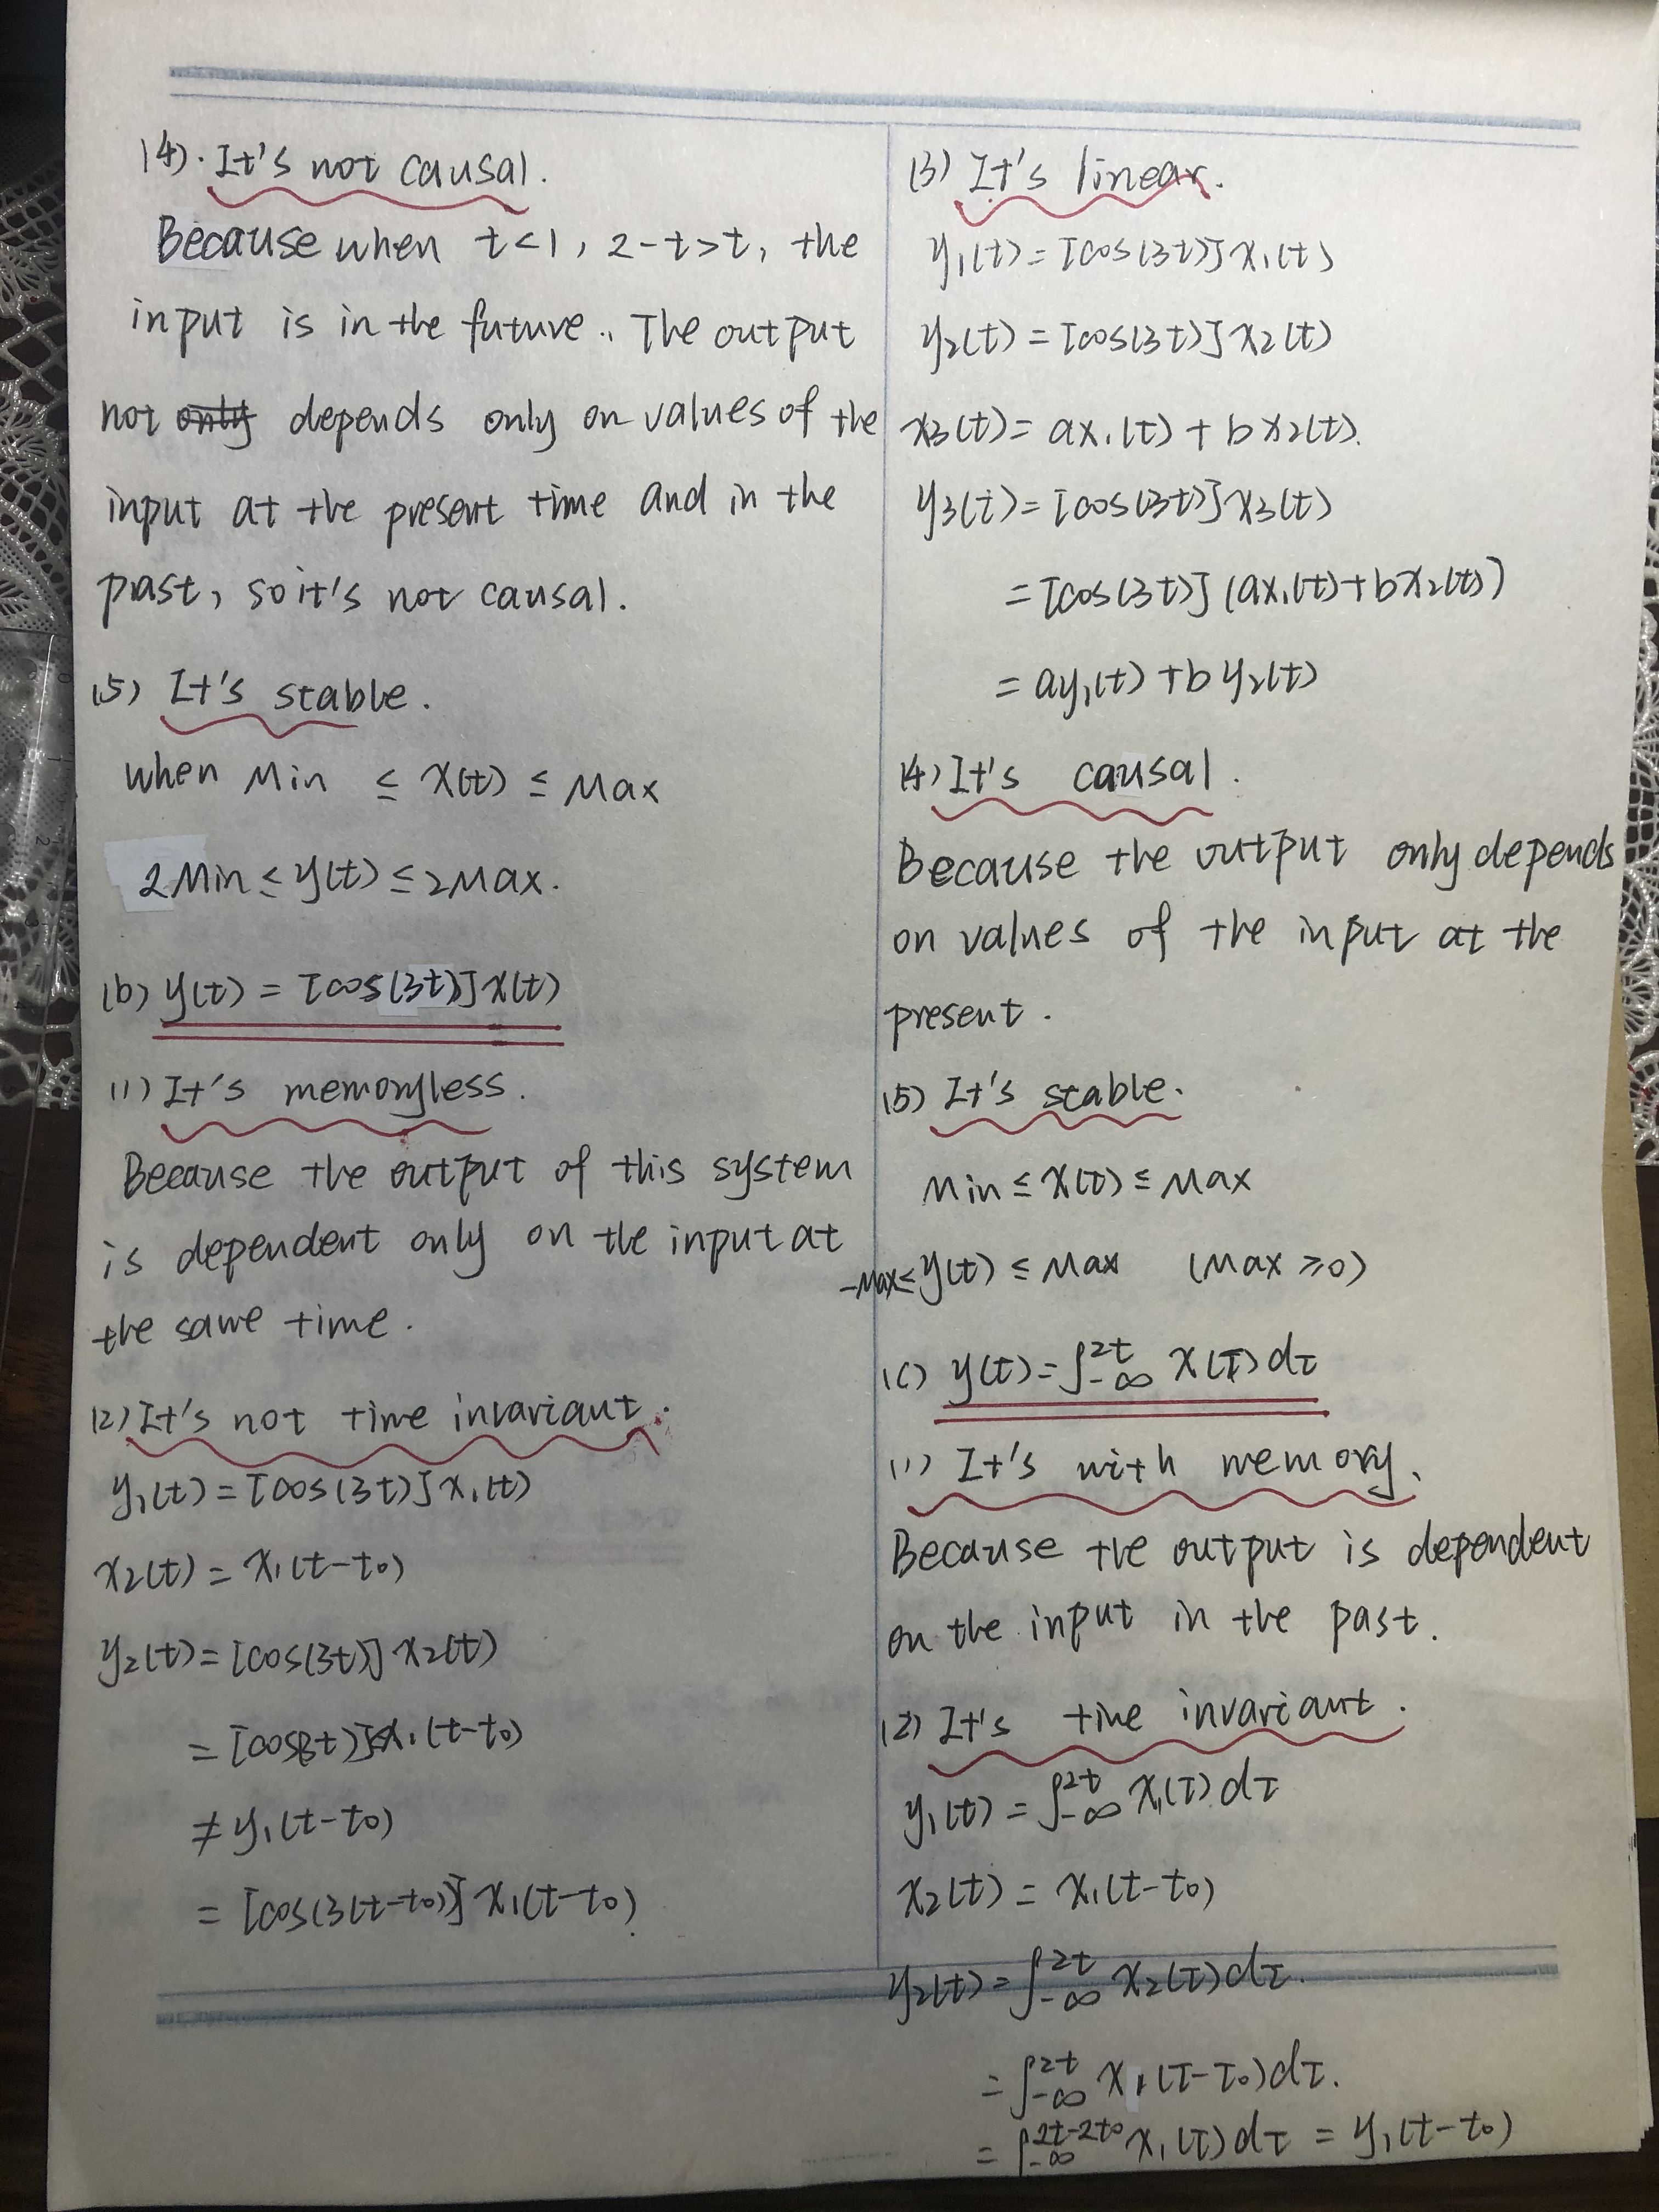 (4). It's not causal.
Because when t<1, 2-t>t, the
input is in the future. The output
not only depends only on values of the
input at the present time and in the
past, so it's not causal.
(5) It's stable.
when Min ≤ x(t) ≤ Max
2Min ≤ y(t) ≤ 2Max.
(b) y(t) = [cos(3t)]x(t)
(1) It's memoryless.
Because the output of this system
is dependent only on the input at
the same time.
(2) It's not time invariant.
y₁(t) = [cos(3t)]x₁(t)
x₂(t) = x₁(t-t₀)
y₂(t) = [cos(3t)]x₂(t)
= [cos(3t)]x₁(t-t₀)
≠ y₁(t-t₀)
= [cos(3(t-t₀)]x₁(t-t₀)
(3) It's linear.
y₁(t) = [cos(3t)]x₁(t)
y₂(t) = [cos(3t)]x₂(t)
x₃(t) = ax₁(t) + bx₂(t).
y₃(t) = [cos(3t)]x₃(t)
= [cos(3t)](ax₁(t)+bx₂(t))
= ay₁(t) + by₂(t)
(4) It's causal.
Because the output only depends
on values of the input at the
present.
(5) It's stable.
Min ≤ x(t) ≤ Max
-Max ≤ y(t) ≤ Max (Max ≥ 0)
(c) y(t) = ∫₋∞²ᵗ x(τ)dτ
(1) It's with memory.
Because the output is dependent
on the input in the past.
(2) It's time invariant.
y₁(t) = ∫₋∞²ᵗ x₁(τ)dτ
x₂(t) = x₁(t-t₀)
y₂(t) = ∫₋∞²ᵗ x₂(τ)dτ.
= ∫₋∞²ᵗ x₁(τ-τ₀)dτ.
= ∫₋∞²ᵗ⁻²ᵗ⁰ x₁(τ)dτ = y₁(t-t₀)